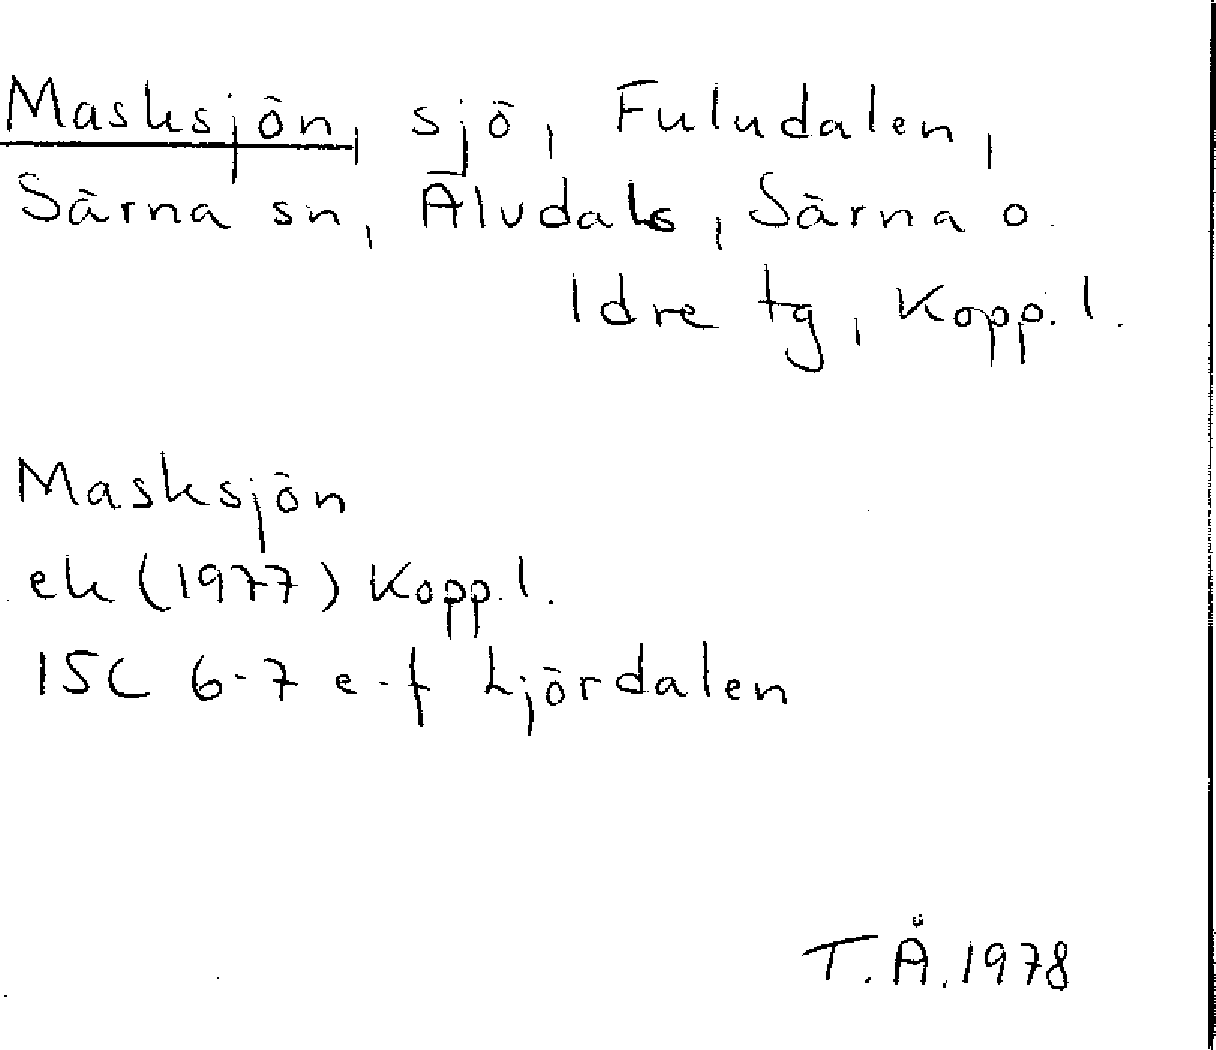 Masksjön, sjö, Fuludalen,
Särna sn, Älvdals, Särna o.
Idre tg, Kopp. l.
Masksjön
ek (1977) Kopp. l.
15C 6-7 e-f Ljördalen
T.Å. 1978